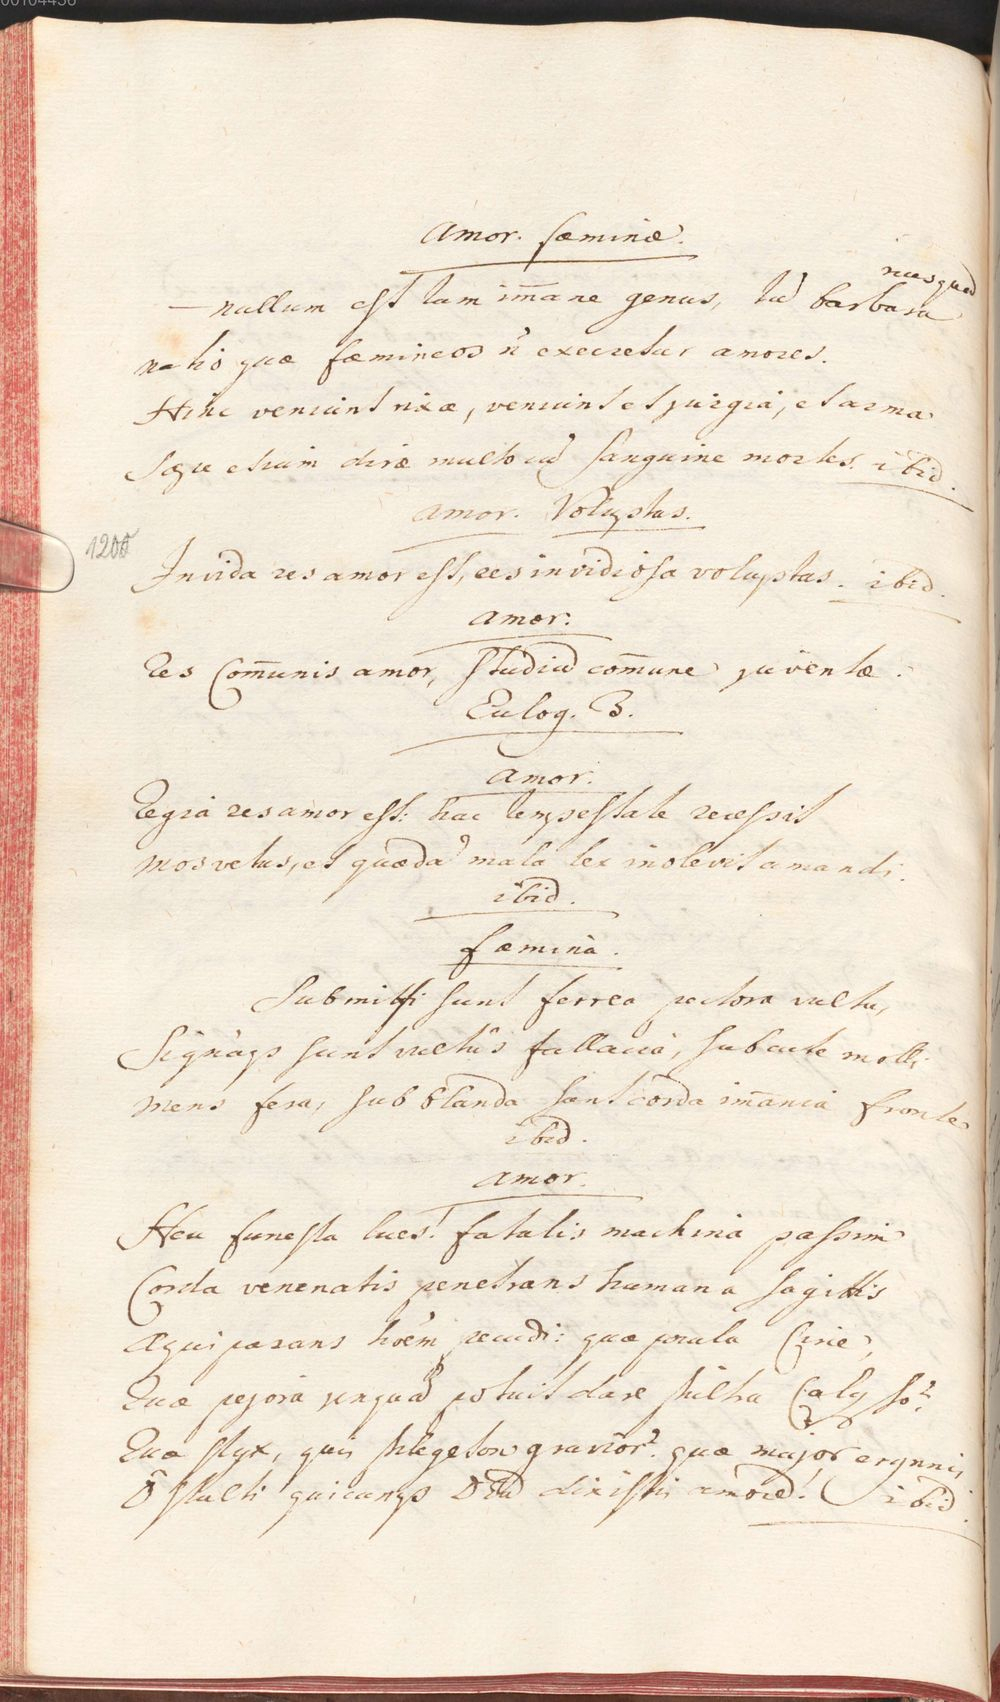 00104436
Amor. fæminæ.
nusquã
— nullum est tam im̄ane genus, tã barbara
natio quæ fæmineos ñ execretur amores.
Hinc veniunt rixæ, veniunt et jurgia, et arma
Sæpe etiam diræ multo cũ sanguine mortes. ibid.
Amor. Voluptas.
1200
Invida res amor est, res invidiosa voluptas. ibid.
Amor.
Res Com̄unis amor, studiũ com̄une juventæ.
Eulog. B.
Amor.
Regia res amor est: hac tempestate recessit
mos vetus, et quædã mala lex inolevit amandi.
ibid.
fæmina.
Submissi sunt ferrea pectora vultu,
Signaqs sunt vultûs fallacia, sub cute molli
mens fera, sub blanda sunt corda im̄ania fronte
ibid.
Amor.
Heu funesta lues! fatalis machina passim
Corda venenatis penetrans humana sagittis
Æquiparans hoēm pecudi: quæ pocula Circe,
Quæ pejora unquã potuit dare stulta Calypso?
Quæ styx, quis phlegeton gravior? quæ major erynnis
O stulti quicunqs Deũ dixistis amorẽ! ibid.